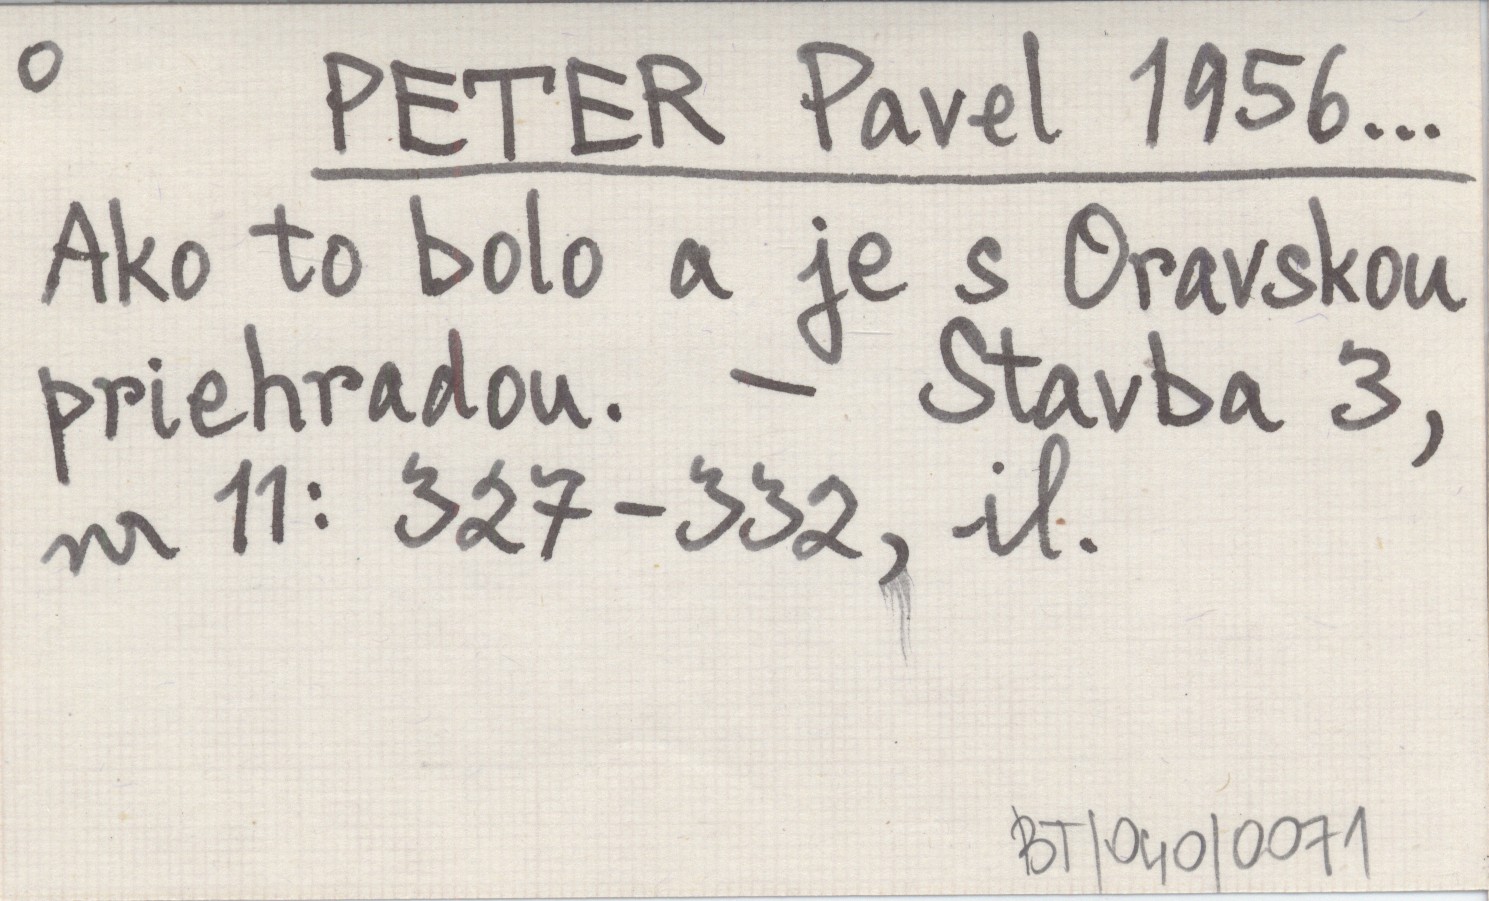 o PETER Pavel 1956...
Ako to bolo a je s Oravskou
priehradou. – Stavba 3,
nr 11: 327-332, il.
BT/040/0071